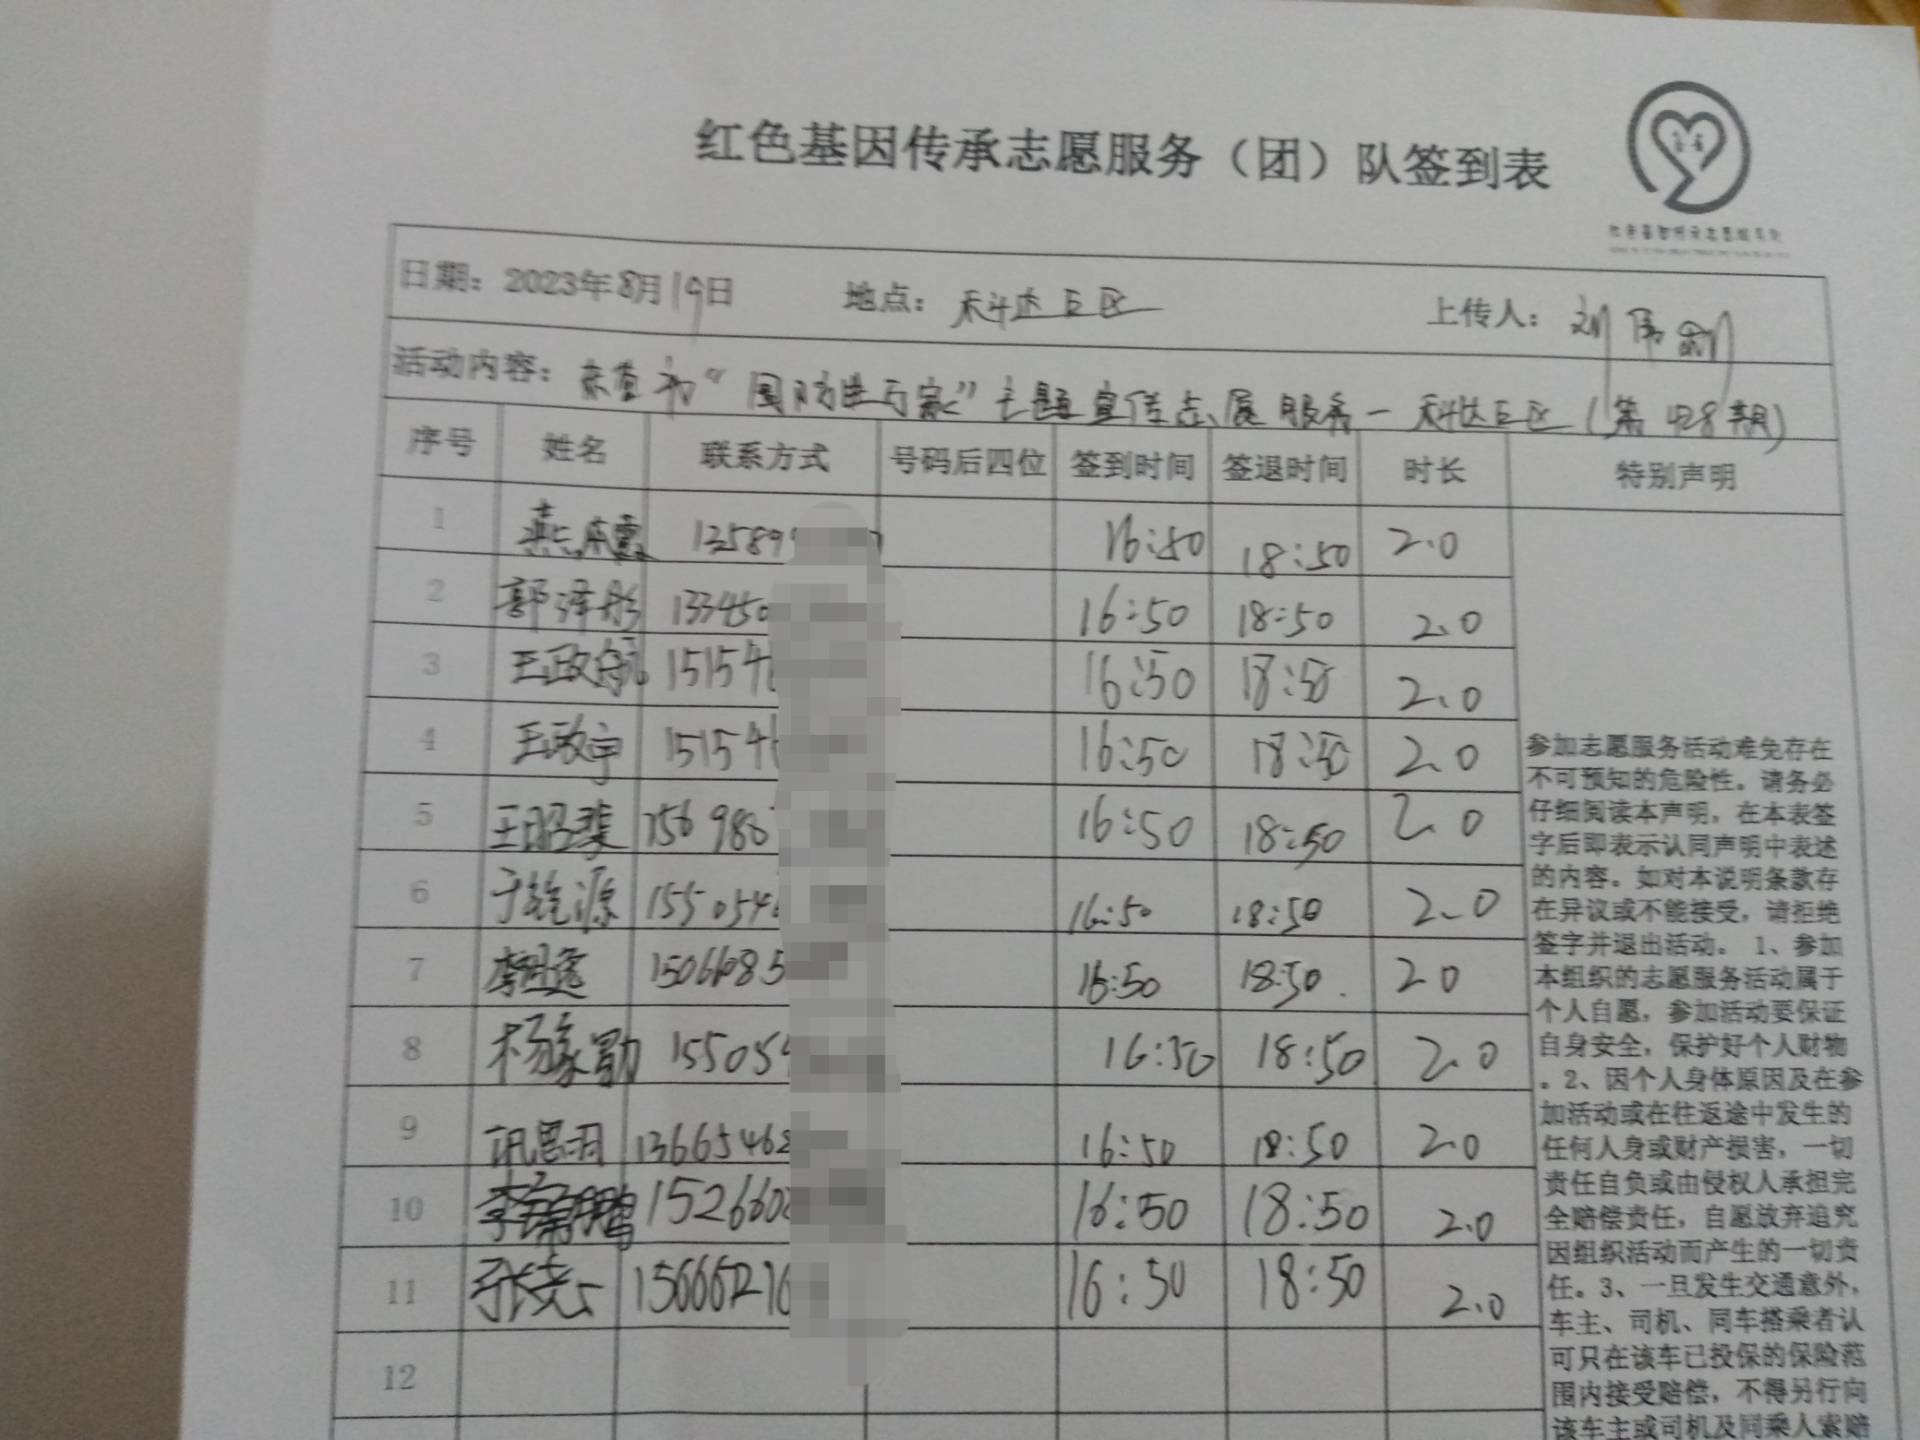 红色基因传承志愿服务（团）队签到表
日期：2023年8月19日 地点：科达巨区 上传人：刘
活动内容："国防进万家"主题宣传志愿服务一科达巨区（第428期）
序号 姓名 联系方式 号码后四位 签到时间 签退时间 时长 特别声明
1 13589 16:50 18:50 2.0
2 郭泽彤 133450 16:50 18:50 2.0
3 王政航 15154 16:50 18:50 2.0
4 王政宇 15154 16:50 18:50 2.0
5 王昭棐 156986 16:50 18:50 2.0
6 于 源 1550546 16:50 18:50 2.0
7 李 逸 15066085 16:50 18:50 2.0
8 杨家勋 15505 16:50 18:50 2.0
9 巩思羽 13665462 16:50 18:50 2.0
10 李 鹏 1526602 16:50 18:50 2.0
11 张 15666216 16:50 18:50 2.0
12
参加志愿服务活动难免存在
不可预知的危险性。请务必
仔细阅读本声明，在本表签
字后即表示认同声明中表述
的内容。如对本说明条款存
在异议或不能接受，请拒绝
签字并退出活动。1、参加
本组织的志愿服务活动属于
个人自愿，参加活动要保证
自身安全，保护好个人财物
。2、因个人身体原因及在参
加活动或在往返途中发生的
任何人身或财产损害，一切
责任自负或由侵权人承担完
全赔偿责任，自愿放弃追究
因组织活动而产生的一切责
任。3、一旦发生交通意外，
车主、司机、同车搭乘者认
可只在该车已投保的保险范
围内接受赔偿，不得另行向
该车主或司机及同乘人索赔